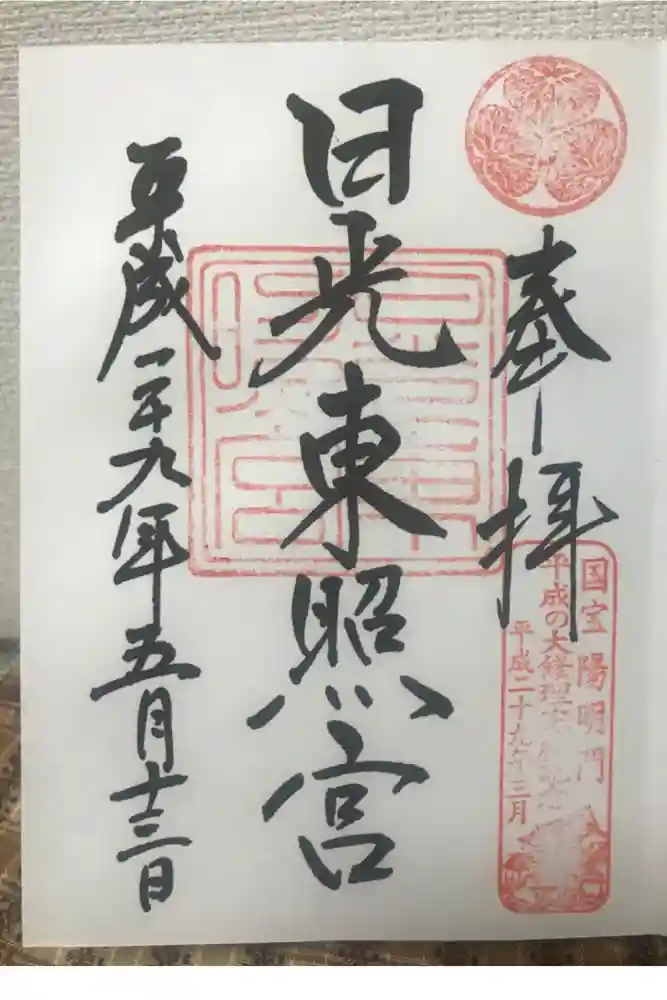 奉拝
国宝 陽明門
平成の大修理
平成二十九年三月
日光東照宮
平成二十九年五月十三日